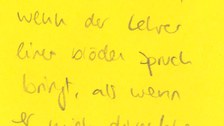 wenn der Lehrer
einen blöden Spruch
bringt, als wenn
er mich